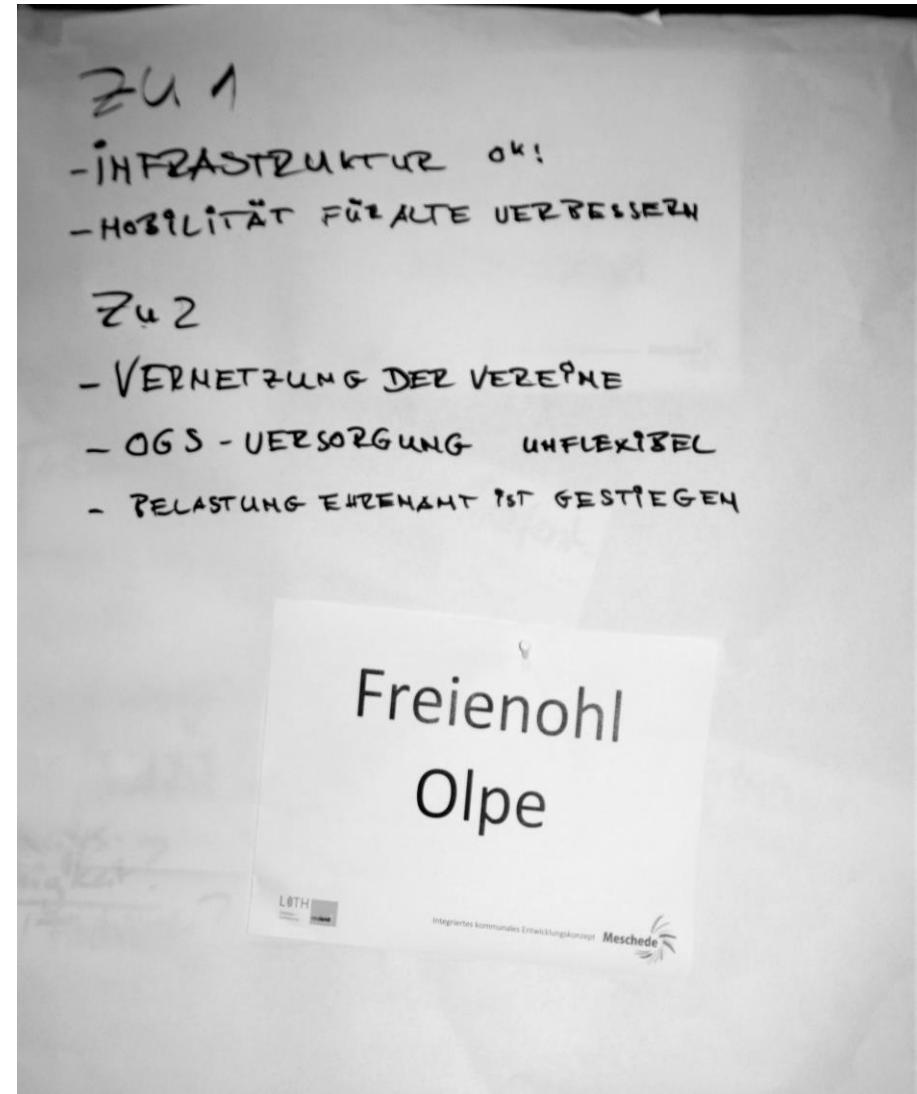 Zu 1
- INFRASTRUKTUR OK!
- MOBILITÄT FÜR ALTE VERBESSERN
Zu 2
- VERNETZUNG DER VEREINE
- OGS - VERSORGUNG UNFLEXIBEL
- BELASTUNG EHRENAMT IST GESTIEGEN
Freienohl
Olpe
LOTH
Integriertes kommunales Entwicklungskonzept Meschede